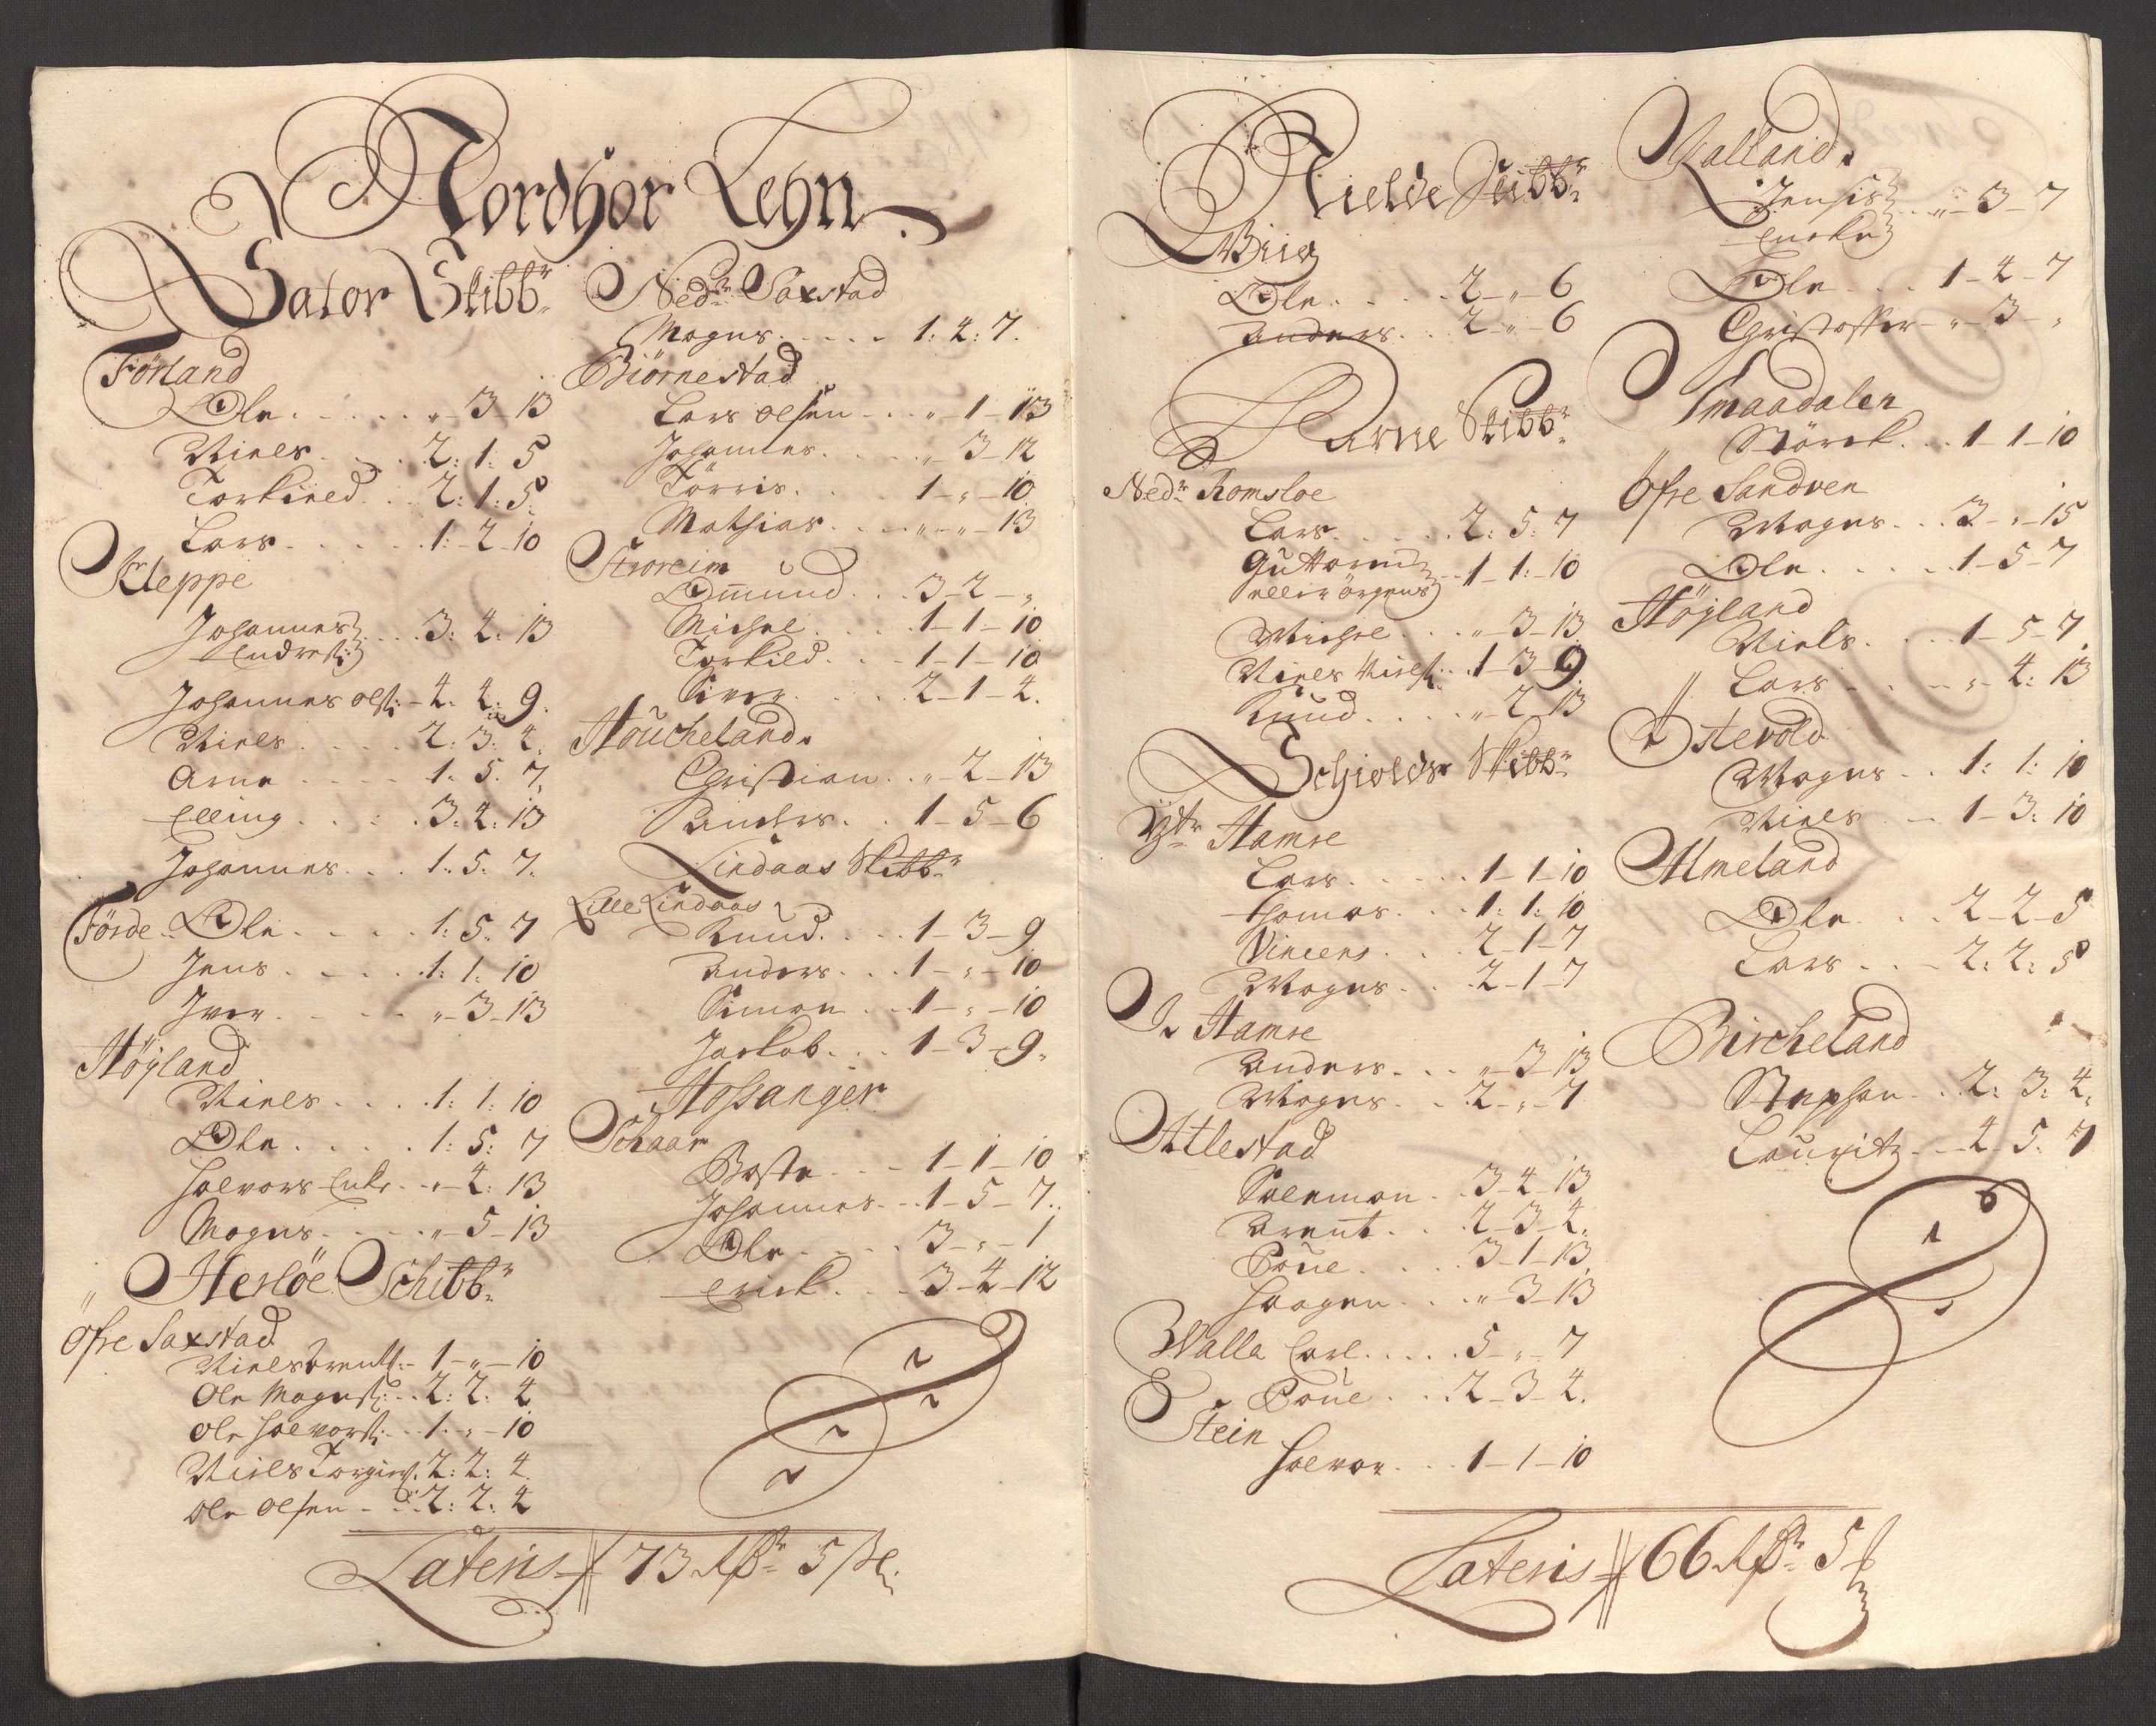 Nordhor Lehn
Sator Skibbr
Förland
Ole . . . . „ - 3 - 13
Niels . . . 2: 1: 5
Torkield . . 2: 1: 5
Lars . . . . 1: - 2 - 10
Kleppe
Johannes
Endres: . . 3: 4: 13
Johannes ols: - 4: 4: 9.
Niels . . . . 2: 3: 4.
Arne . . . . 1: 5: 7.
Elling . . . . 3: 4: 13
Johannes . . . 1: 5: 7.
Förde Ole . . . . 1: 5: 7
Jens . . . . 1: 1: 10
Iver . . . . „ - 3 - 13
Höyland
Niels . . . . 1: 1: 10
Ole . . . . . 1: 5: 7
Halvors Enke . . „ - 4: 13
Mogns . . . . „ - 5 - 13
Herlöe Schibbr
Öfre Saxstad
Niels Brents: - 1 - „ - 10
Ole Magns: . . 2: 2: 4
Ole Halvors: . . 1 - „ - 10
Niels Torgiers: 2: 2: 4.
Ole Olsen - . . 2: 2: 4
Nedr Saxstad
Mogns . . . . . 1: 4: 7.
Biörnestad
Lars Olsen . . . „ - 1 - 13
Johannes . . . . „ - 3 - 12
Törris . . . . 1 - „ - 10
Mathias . . . . „ - „ - 13
Storeim
Omund . . . 3 - 2 - „
Michel . . . . 1 - 1 - 10
Torkild . . . 1 - 1 - 10
Siver . . . . 2 - 1 - 4.
Houcheland
Christian . . „ - 2 - 13
Anders . . 1 - 5 - 6
Lindaas Skibbr
Lille Lindaas
Knud . . . 1 - 3 - 9
Anders . . . 1 - „ - 10
Simon . . . 1 - „ - 10
Jackob . . . 1 - 3 - 9.
Hossanger
Schaar
Boste . . . 1 - 1 - 10
Johannes . . . 1 - 5 - 7.
Ole . . . . 3 - „ - 1
Erick . . . 3 - 4 - 12
Lateris 73 Rdr 5
Kielde Skibbr
Ole . . . . . 2 - „ - 6
Anders . . . 2 - „ - 6
Arne Skibbr
Nedr Romsloe
Lars . . . . . 2: 5: 7
Guttorm
eller . . 1 - 1: - 10
Michel . . . „ - 3 - 13
Niels Niels: . 1 - 3 - 9
Knud . . . . „ - 2 - 13
Schiolds Skibbr
Ytr Hamre
Lars . . . . . 1 - 1 - 10
Thomas . . . 1: 1: 10
Vincens . . . 2 - 1 - 7
Mogns . . . 2 - 1 - 7
I. Hamre
Anders . . . „ - 3 - 13
Mogns . . . 2 - „ - 7
Attlestad
Salemon . . 3 - 4 - 13
Brent . . . 2 - 3 - 4.
Poue . . . . 3 - 1 - 13.
Haagen . . . „ - 3 - 13
Walla Carl . . . . . 5 - „ - 7
Poue . . . 2 - 3 - 4.
Stein
Halvor . . . 1 - 1 - 10
Jensis
Encke . . „ - 3 - 7
Ole . . . . 1 - 4 - 7
Christoffer - „ - 3 - „
Smaadalen
Störck . . . 1 - 1 - 10
Öfre Sandven
Mogns . . . 3 - „ - 15
Ole . . . . . 1 - 5 - 7
Höyland
Niels . . . . 1 - 5 - 7
Lars . . . . „ - 4: 13
Östevold
Mogns . . 1: 1: 10
Niels . . . 1 - 3: 10
Almeland
Ole . . . 2 - 2 - 5
Lars . . . 2: 2: 5
Bircheland
Stephen . . 2: 3: 4.
Lauritz . . . 4 - 5: 7
Lateris 66 Rdr 5